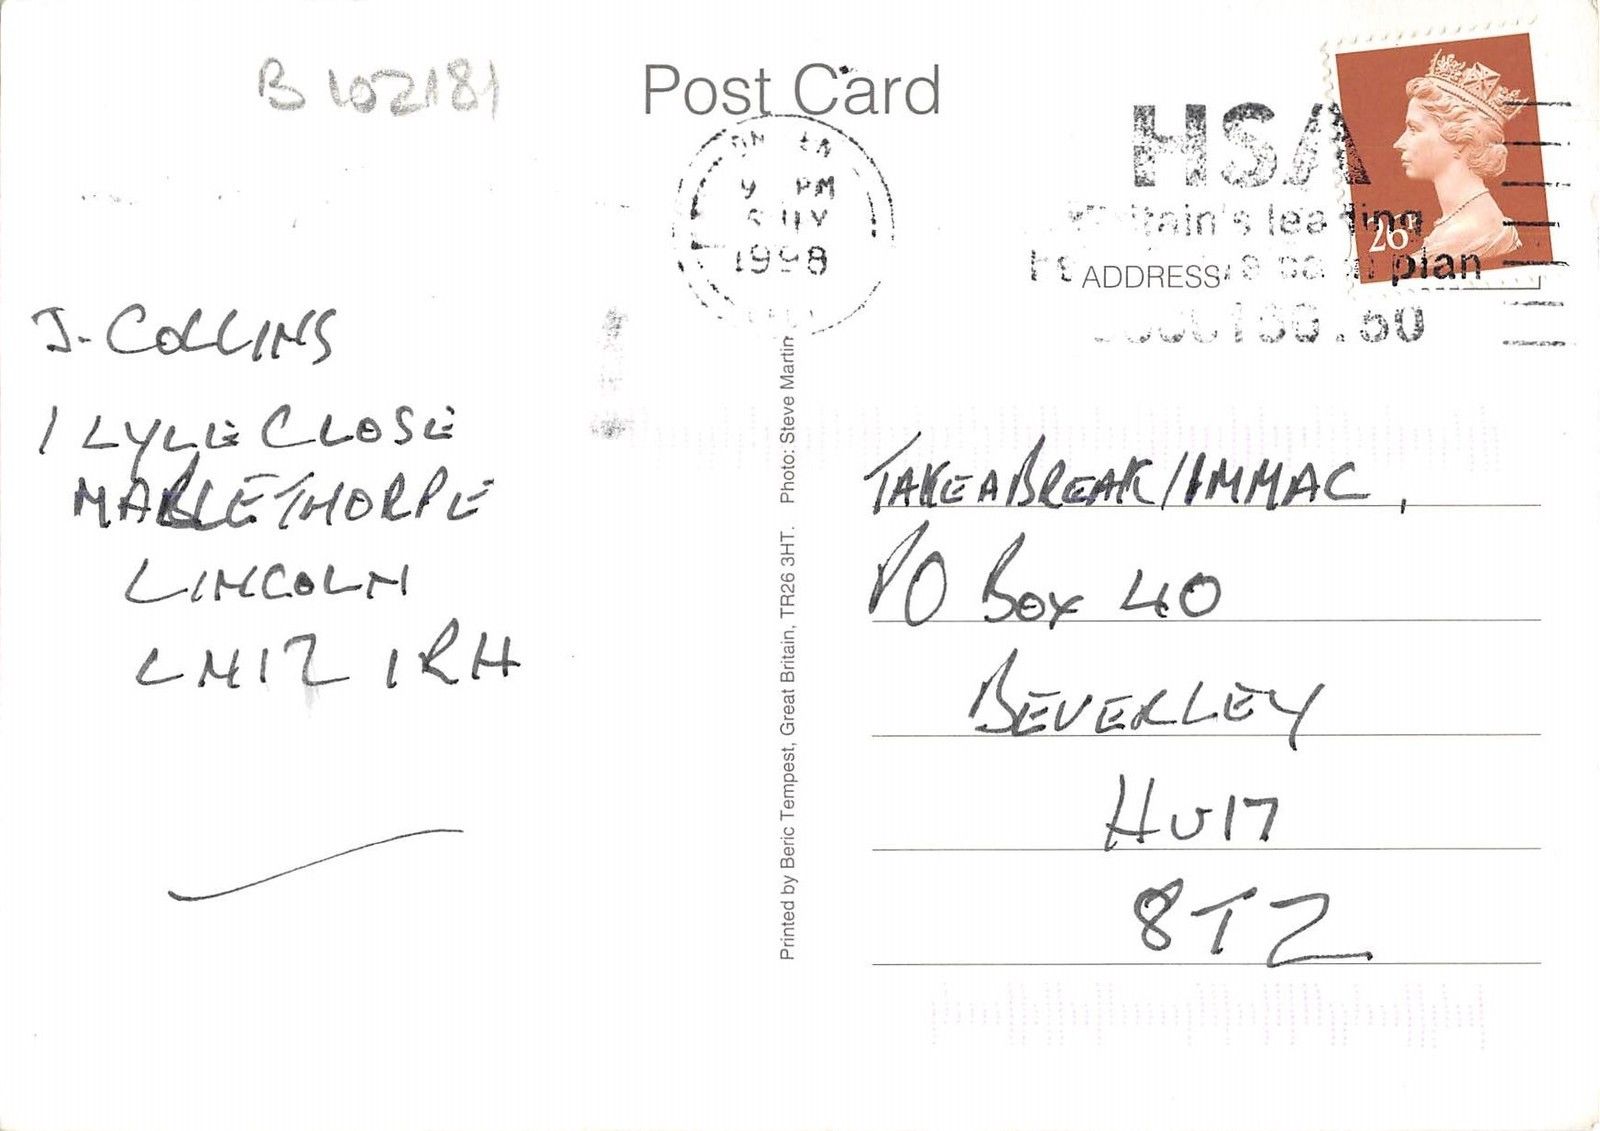 B 102181
Post Card
PM
1998
HSA
Britain's leading
plan
26P
ADDRESS
J. COLLINS
1 LYLE CLOSE
MABLETHORPE
LINCOLN
LN12 1RH
Printed by Beric Tempest, Great Britain, TR26 3HT. Photo: Steve Martin
TAKE A BREAK/IMMAC,
PO BOX 40
BEVERLEY
HU17
8TZ